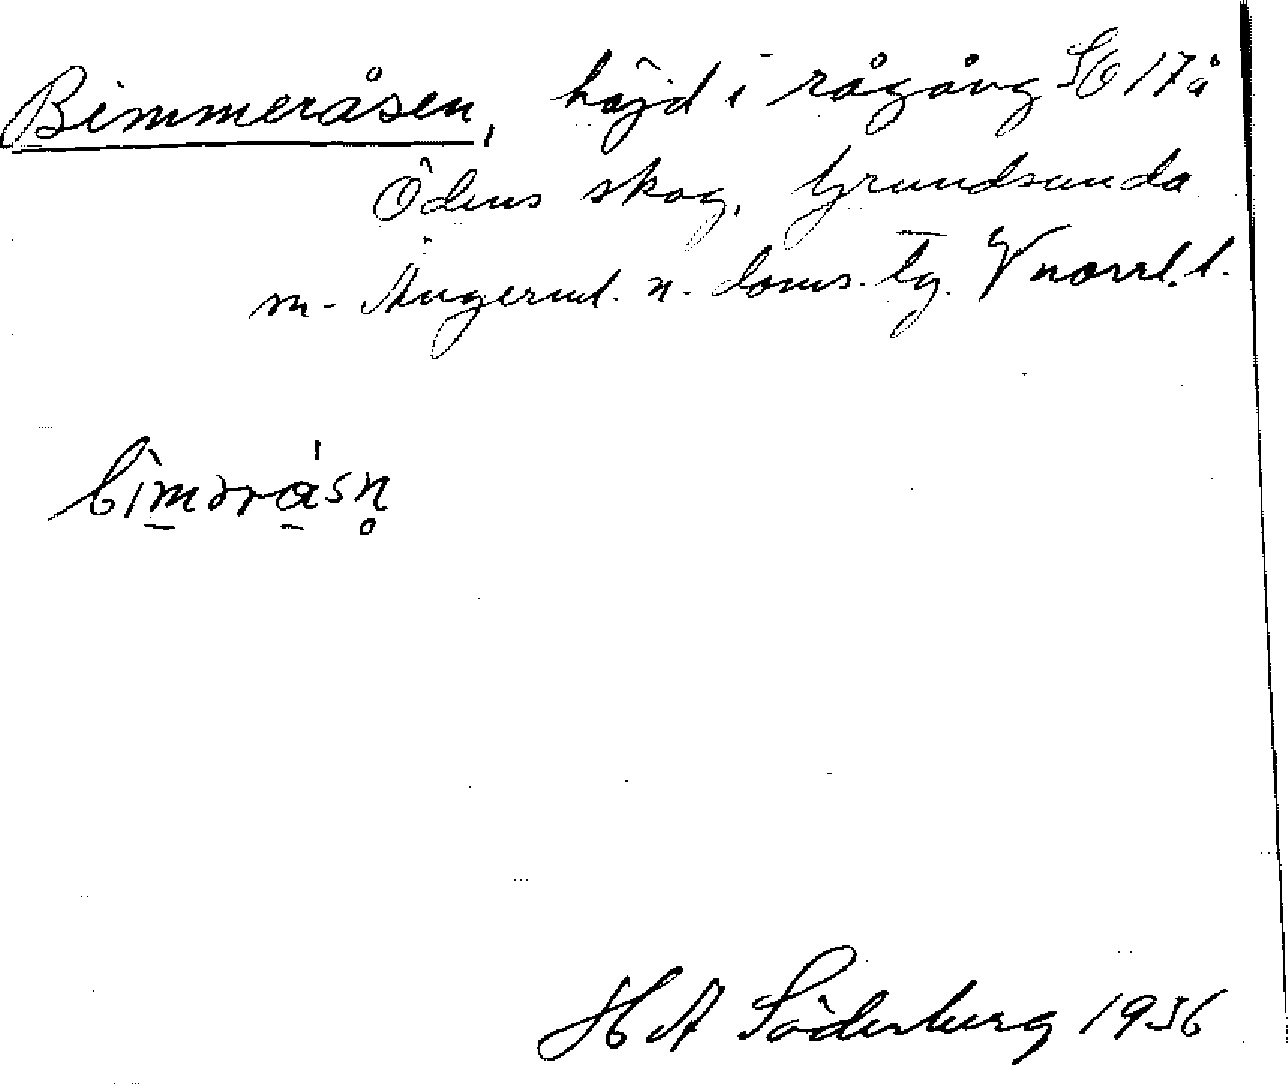 Bimmeråsen, höjd i rågång SO 17 å
Ödens skog, Grundsunda
m. Ångerml. n. doms. tg. Vnorrl. l.
biməråsn̥
H A Söderberg 1936